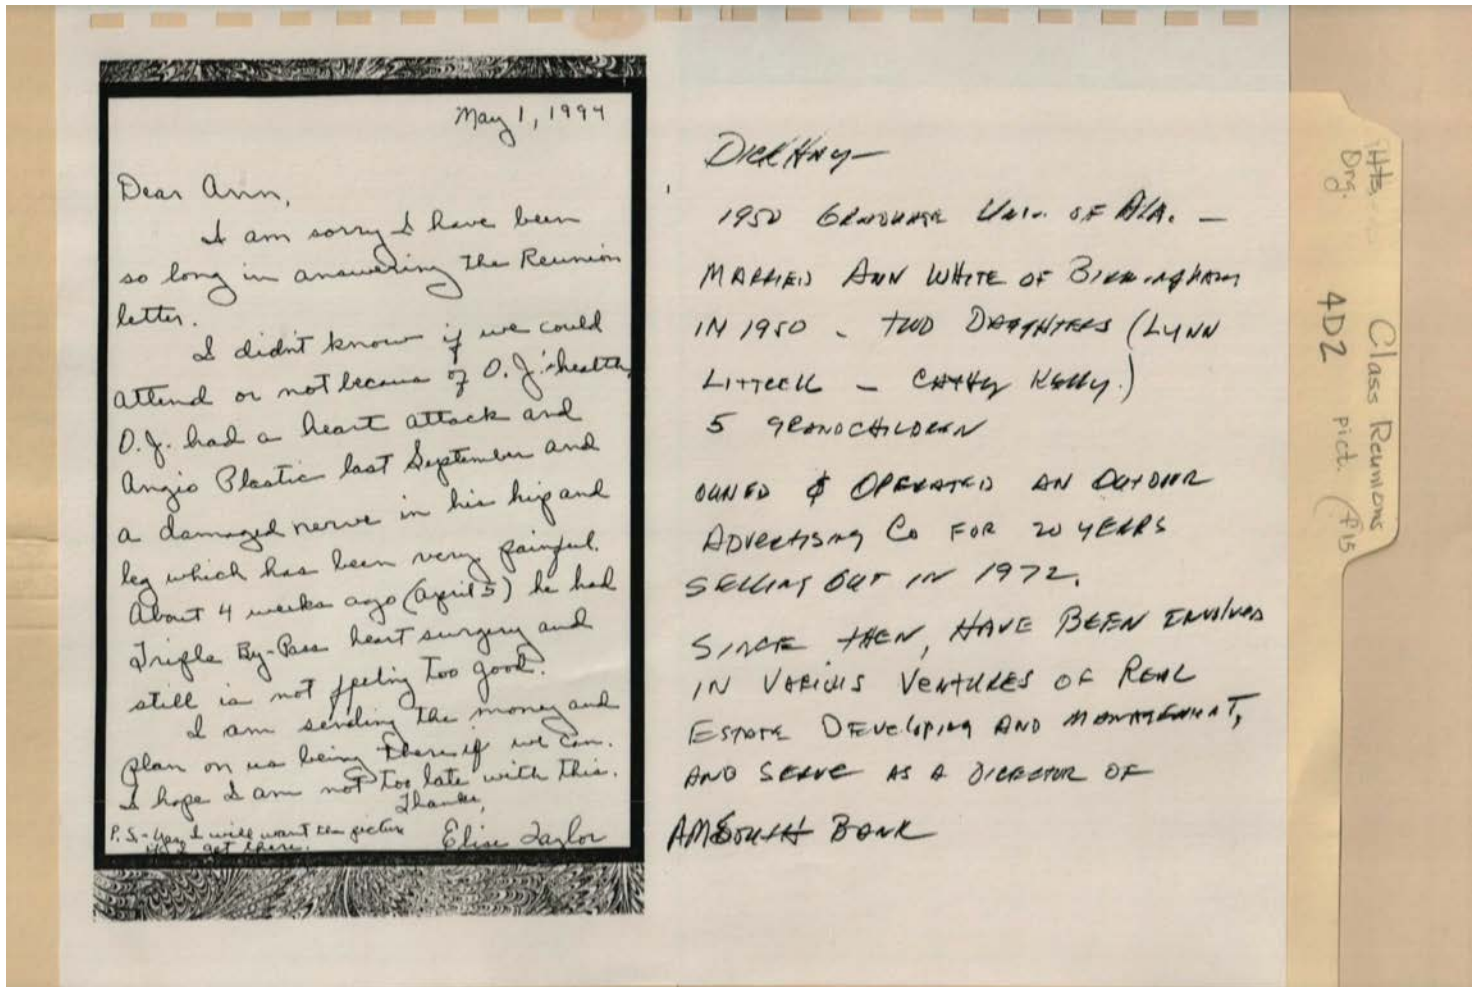 May 1, 1994
Dear Ann,
I am sorry I have been
so long in answering the Reunion
letter.
I didn't know if we could
attend or not because of O. J.'s health,
O.J. had a heart attack and
Angio Plastic last September and
a damaged nerve in his hip and
leg which has been very painful.
About 4 weeks ago (April 5) he had
Triple By-Pass heart surgery and
still is not feeling too good.
I am sending the money and
plan on us being there if we can.
I hope I am not too late with this.
Thanks,
Elise Taylor
P. S. - Yes, I will want the picture
if I get there.
Dick Hny—
1950 GRADUATE UNIV. OF ALA. —
MARRIED ANN WHITE OF BIRMINGHAM
IN 1950 - TWO DAUGHTERS (LYNN
— CATHY KELLY.)
5 GRANDCHILDREN
OWNED & OPERATED AN OUTDOOR
ADVERTISING CO FOR 20 YEARS
SELLING OUT IN 1972.
SINCE THEN, HAVE BEEN INVOLVED
IN VARIOUS VENTURES OF REAL
ESTATE DEVELOPING AND MANAGEMENT,
AND SERVE AS A DIRECTOR OF
AMSOUTH BANK
Hts.
Org.
4D2
Class Reunions
pict. (P15